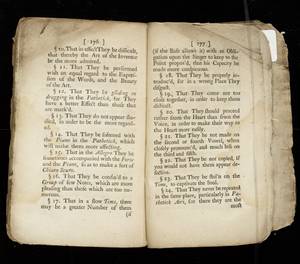 ( 176 )
§ 10. That in effect They be difficult,
that thereby the Art of the Inventor
be the more admired.
§ 11. That They be performed
with an equal regard to the Expres-
sion of the Words, and the Beauty
of the Art.
§ 12. That They be gliding or
dragging in the Pathetick, for They
have a better Effect than those that
are mark'd.
§ 13. That They do not appear stu-
died, in order to be the more regard-
ed.
§ 14. That They be softened with
the Piano in the Pathetick, which
will make them more affecting.
§ 15. That in the Allegro They be
sometimes accompanied with the Forte
and the Piano, so as to make a sort of
Chiaro Scuro.
§ 16. That They be confin'd to a
Group of few Notes, which are more
pleasing than those which are too nu-
merous.
§ 17. That in a slow Time, there
may be a greater Number of them
(if
( 177 )
(if the Bass allows it) with an Obli-
gation upon the Singer to keep to the
Point propos'd, that his Capacity be
made more conspicuous.
§ 18. That They be properly in-
troduc'd, for in a wrong Place They
disgust.
§ 19. That They come not too
close together, in order to keep them
distinct.
§ 20. That They should proceed
rather from the Heart than from the
Voice, in order to make their way to
the Heart more easily.
§ 21. That They be not made on
the second or fourth Vowel, when
closely pronounc'd, and much less on
the third and fifth.
§ 22. That They be not copied, if
you would not have them appear de-
fective.
§ 23. That They be stol'n on the
Time, to captivate the Soul.
§ 24. That They never be repeated
in the same place, particularly in Pa-
thetick Airs, for there they are the
most